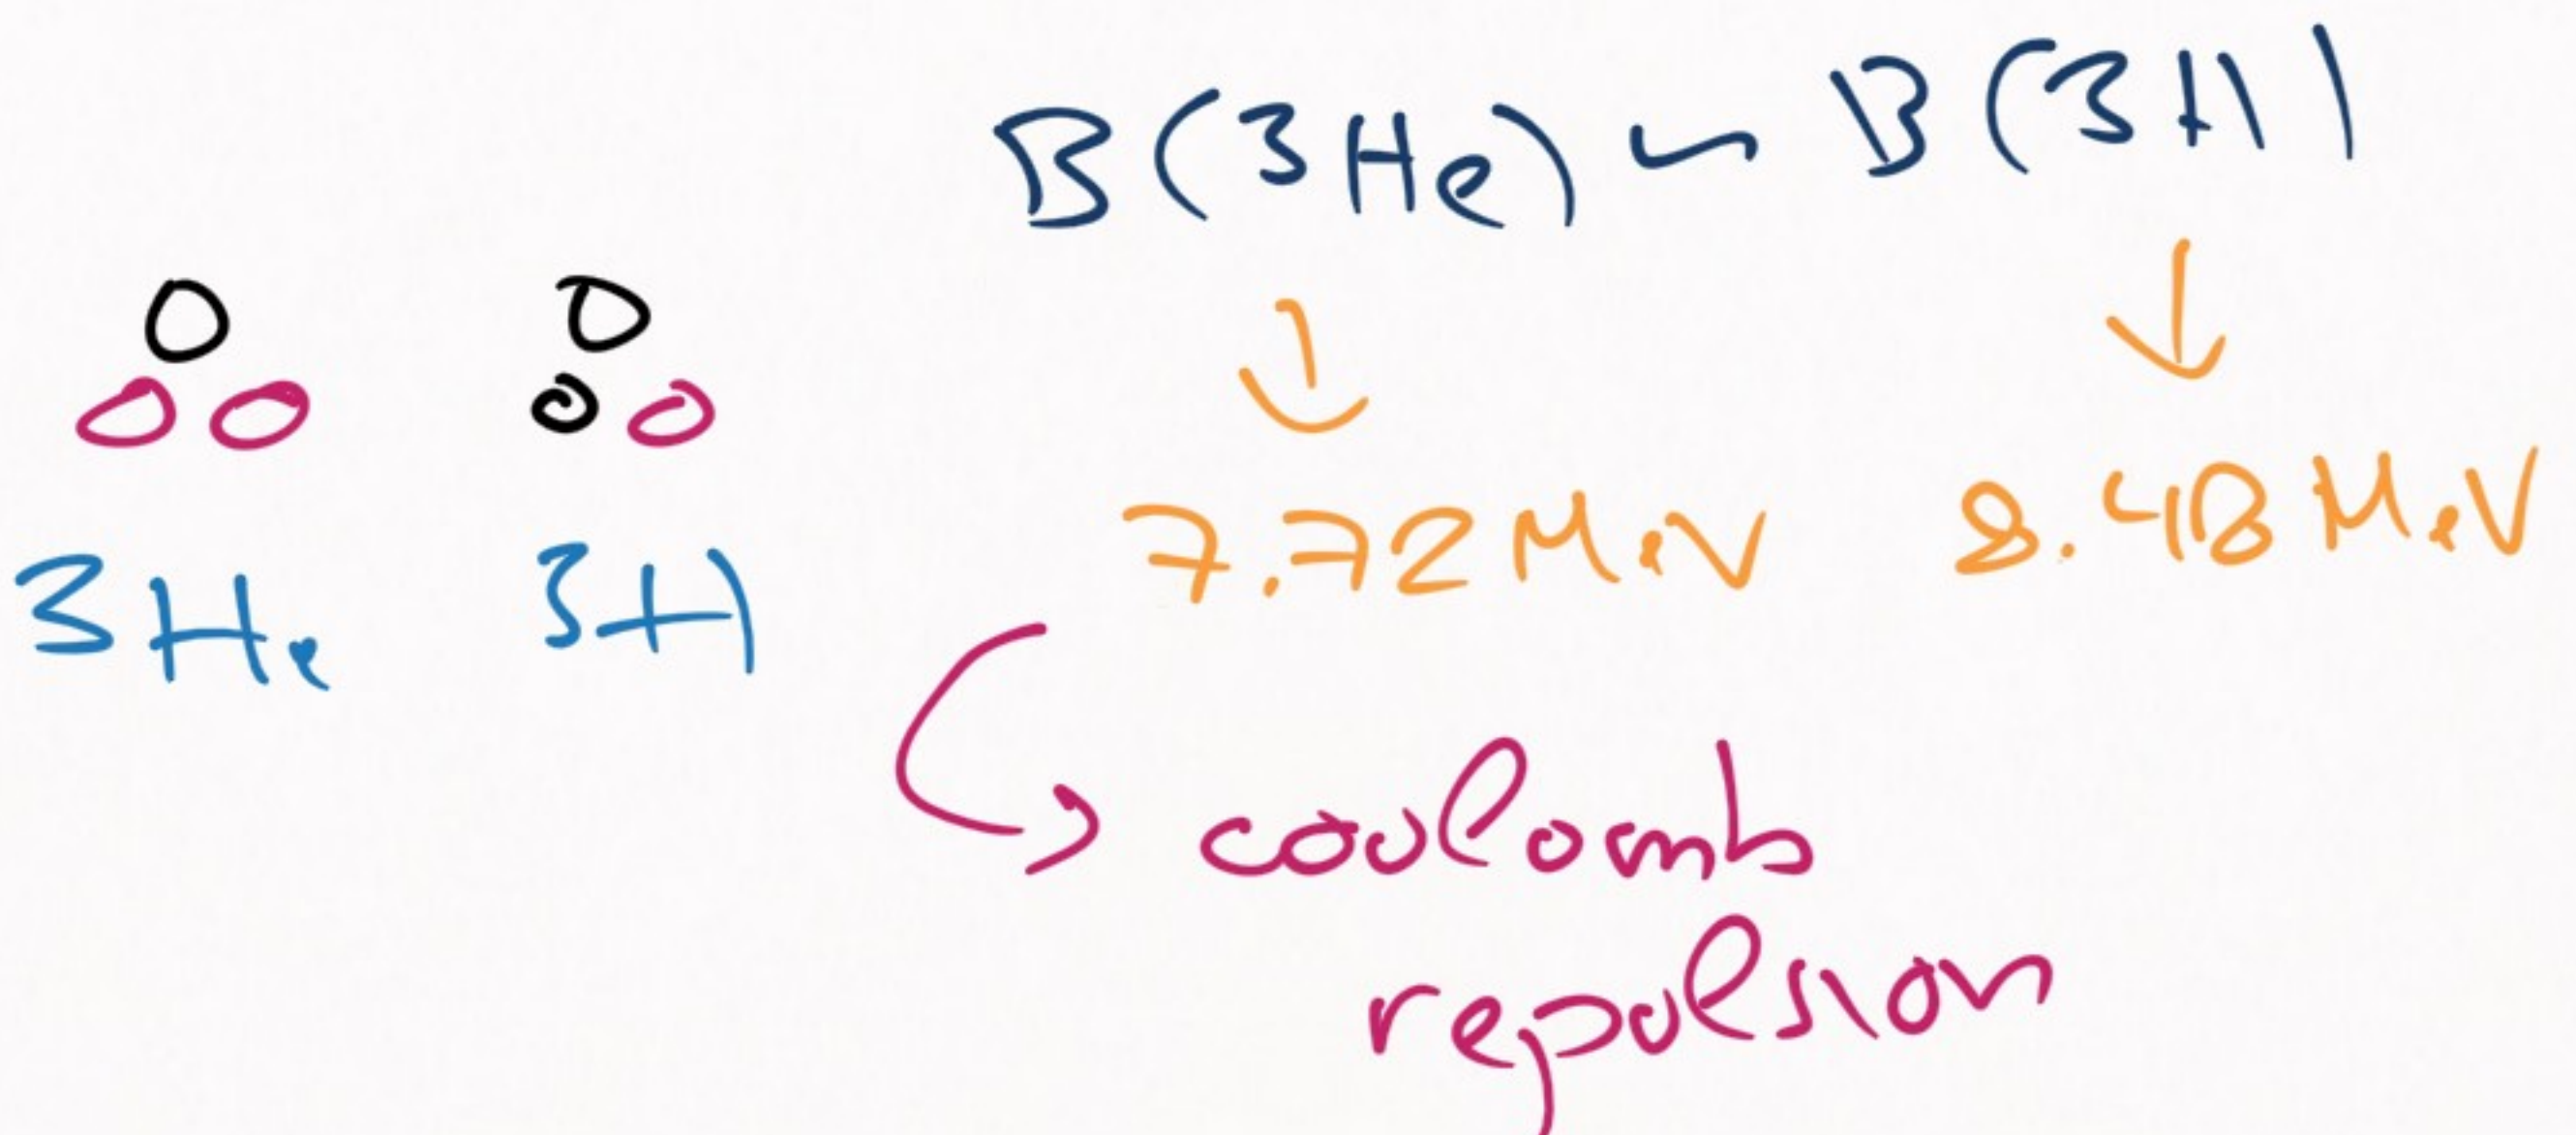 B(3He) ~ B(3H)
3He 3H
7.72 MeV 8.48 MeV
coulomb
repulsion